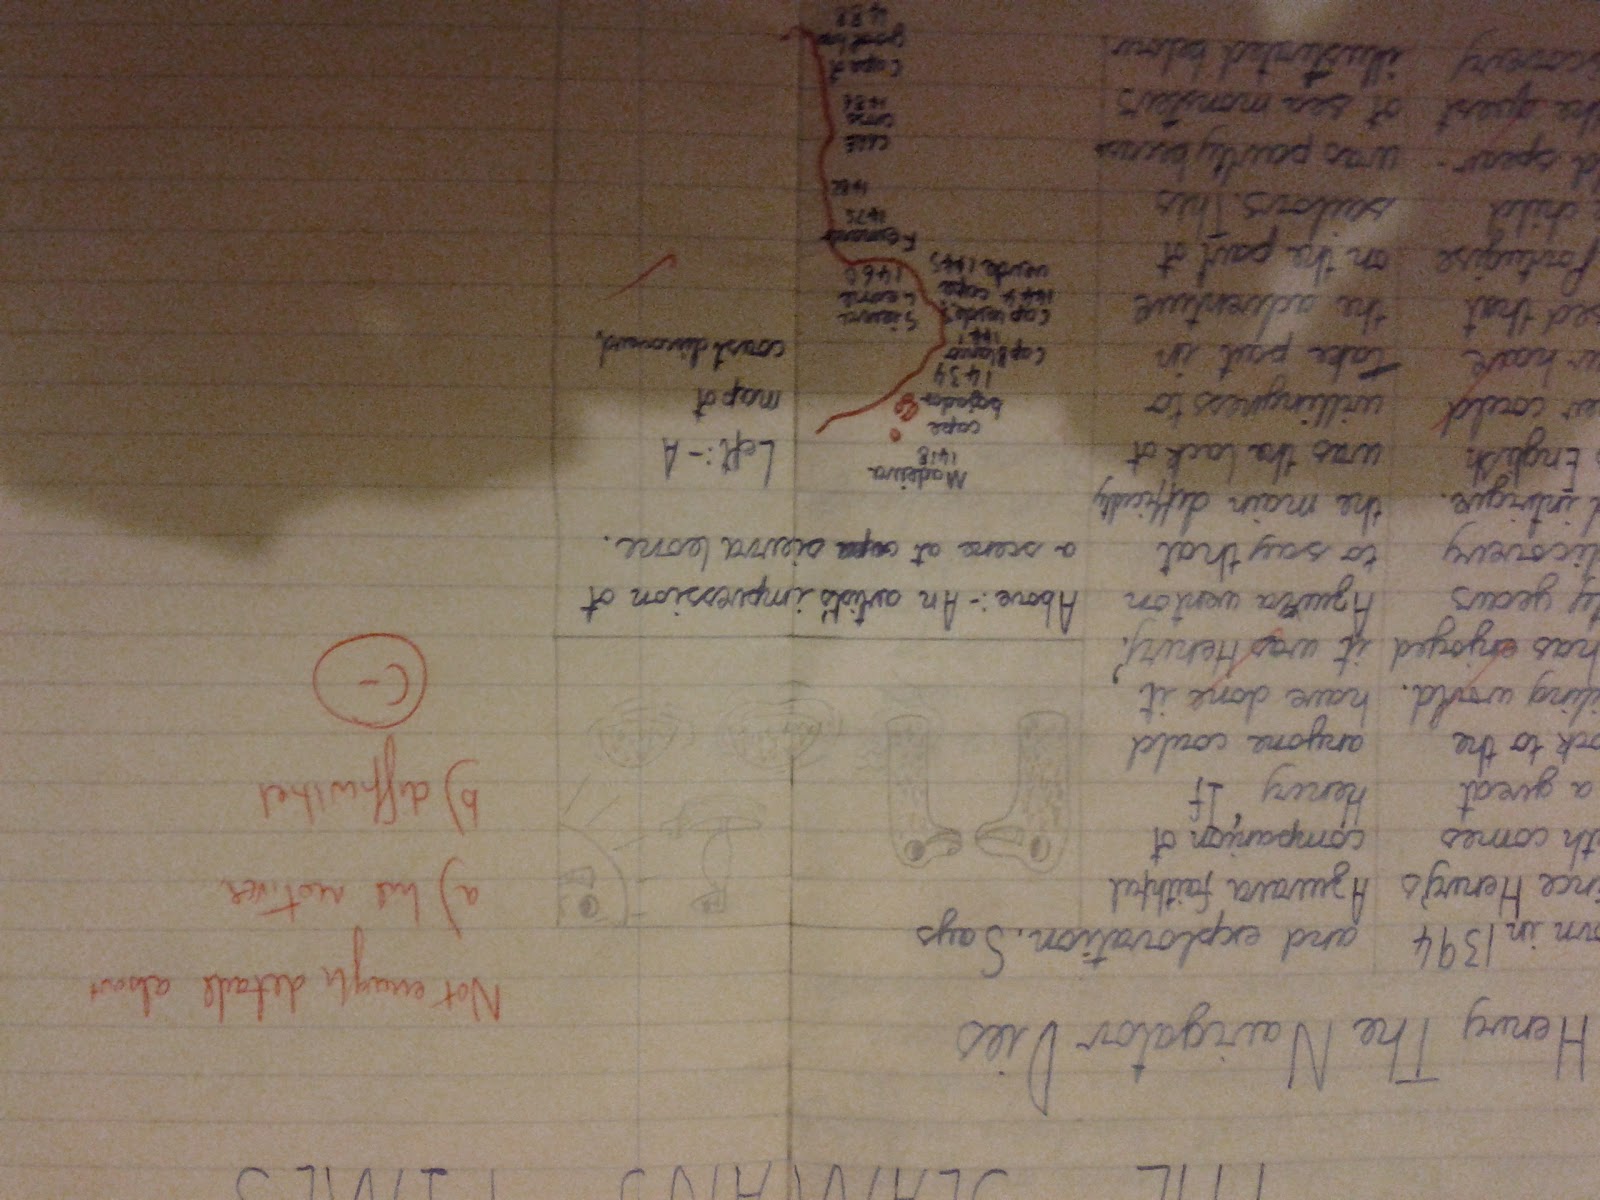 THE SEAMANS TIMES
Henry The Navigator Dies
in 1394
Henry's
comes
a great
to the
world.
has enjoyed
years
discovery
intrigue.
English
could
have
that
Portugise
child
spear-
the quest
and exploration. Says
Azurara faithful
companion of
Henry, "If
anyone could
have done it
it was Henry."
Azurara went on
to say that
the main difficulty
was the lack of
willingness to
take part in
the adventure
on the part of
sailors. This
was partly becaus
of sea monsters
illustrated below
Above:- An artists impression of
a scene at sierra leone.
Madeira
1418
cape
bojador
1434
Cap Blanco
1441
Cap verdes
1444 cape
verde 1445
Sierra
Leone
1460
Fernando
1475
1482
Cape
cross
1486
Cape of
good hope
1488
Left:- A
map of
coast discovered.
Not enough details about
a) his motives
b) difficulties
C-